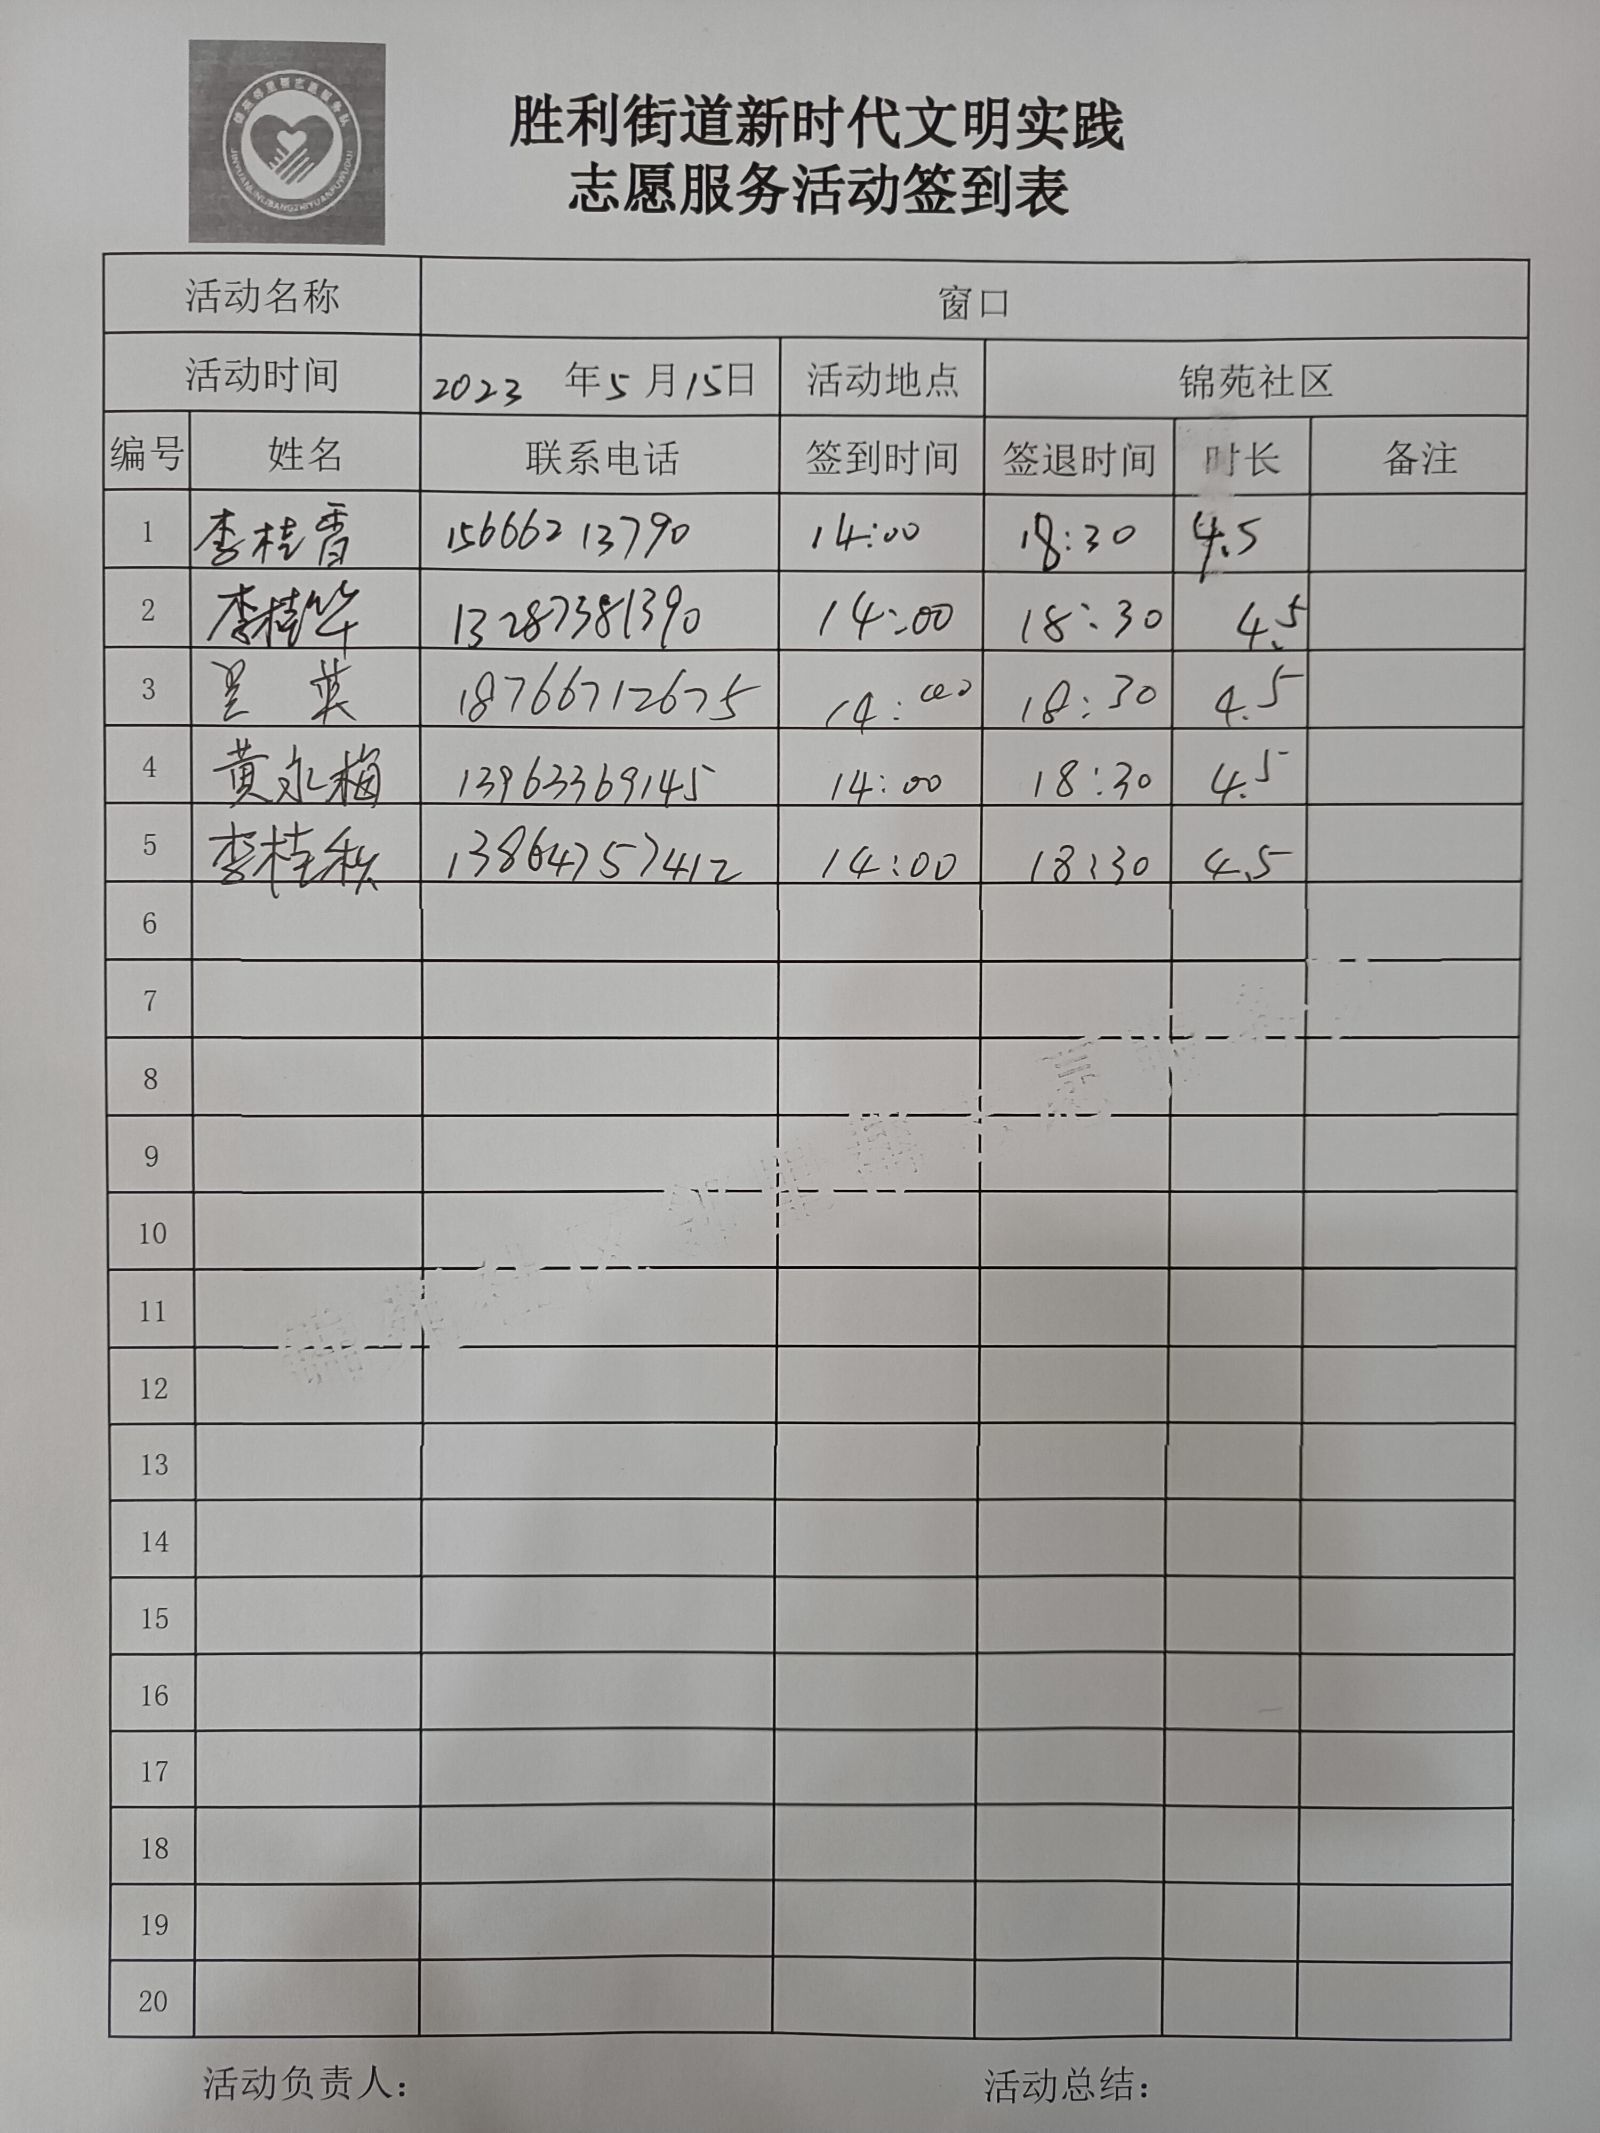 锦苑邻里帮志愿服务队
JINYUANLINLIBANGZHIYUANFUWUDUI
胜利街道新时代文明实践
志愿服务活动签到表
活动名称 窗口
活动时间 2023 年 5 月 15 日 活动地点 锦苑社区
编号 姓名 联系电话 签到时间 签退时间 时长 备注
1 李桂香 15666213790 14:00 18:30 4.5
2 李桂华 13287381390 14:00 18:30 4.5
3 吴英 18766712675 14:00 18:30 4.5
4 黄永梅 13963369145 14:00 18:30 4.5
5 李桂秋 13864757412 14:00 18:30 4.5
6
7
8
9
10
11
12
13
14
15
16
17
18
19
20
活动负责人： 活动总结：